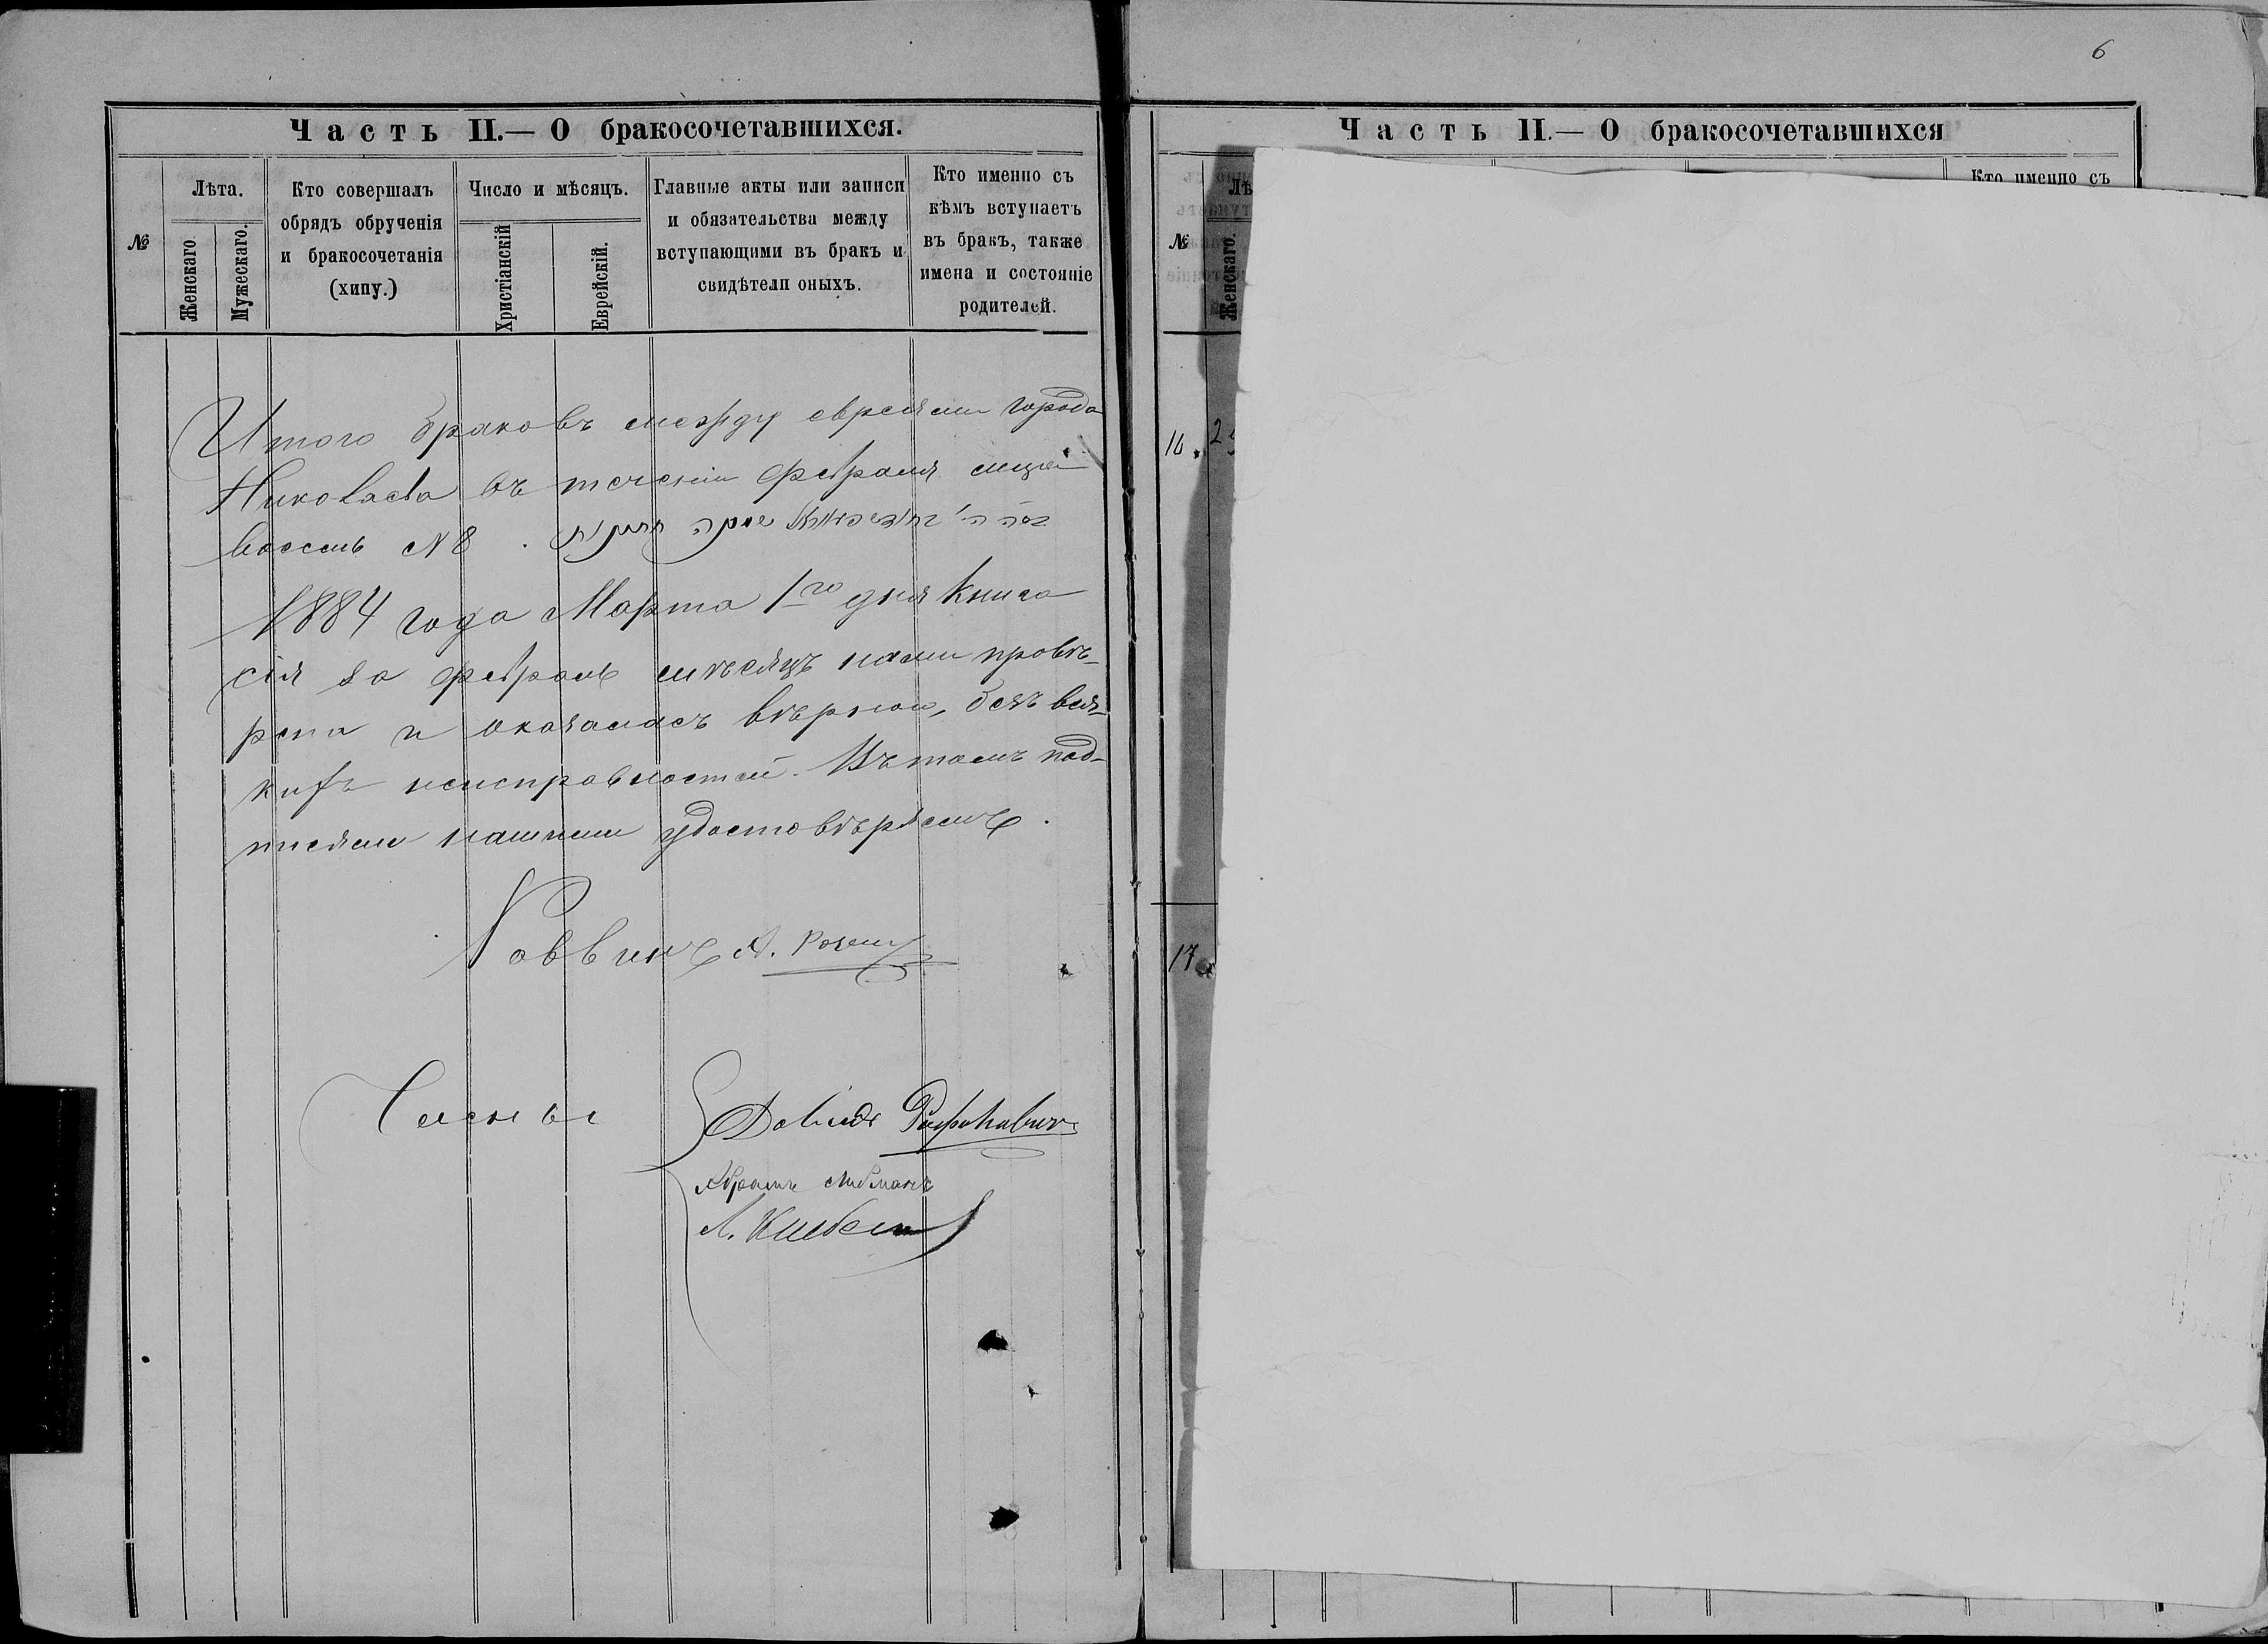 6
Часть II.— О бракосочетавшихся.
№
Лѣта.
Женскаго.
Мужескаго.
Кто совершалъ
обрядъ обрученія
и бракосочетанія
(хипу.)
Число и мѣсяцъ.
Христіанскій
Еврейскій.
Главные акты или записи
и обязательства между
вступающими въ бракъ и
свидѣтели оныхъ.
Кто именно съ
кѣмъ вступаетъ
въ бракъ, также
имена и состояніе
родителей.
Итого браковъ между евреями города
Николаева въ теченіи февраля
восемь № 8.
1884 года Марта 1го дня книга
сія за февраль мѣсяцъ нами провѣ-
рена и оказалась вѣрною, безъ вся-
кихъ неисправностей. Въ томъ под-
писями нашими удостовѣряемъ.
Раввинъ А.
Члены
Давидъ
Абрамъ Либманъ
Л.
Часть II.— О бракосочетавшихся
№
Лѣ
Женскаго.
Кто именно съ
16.
2
17